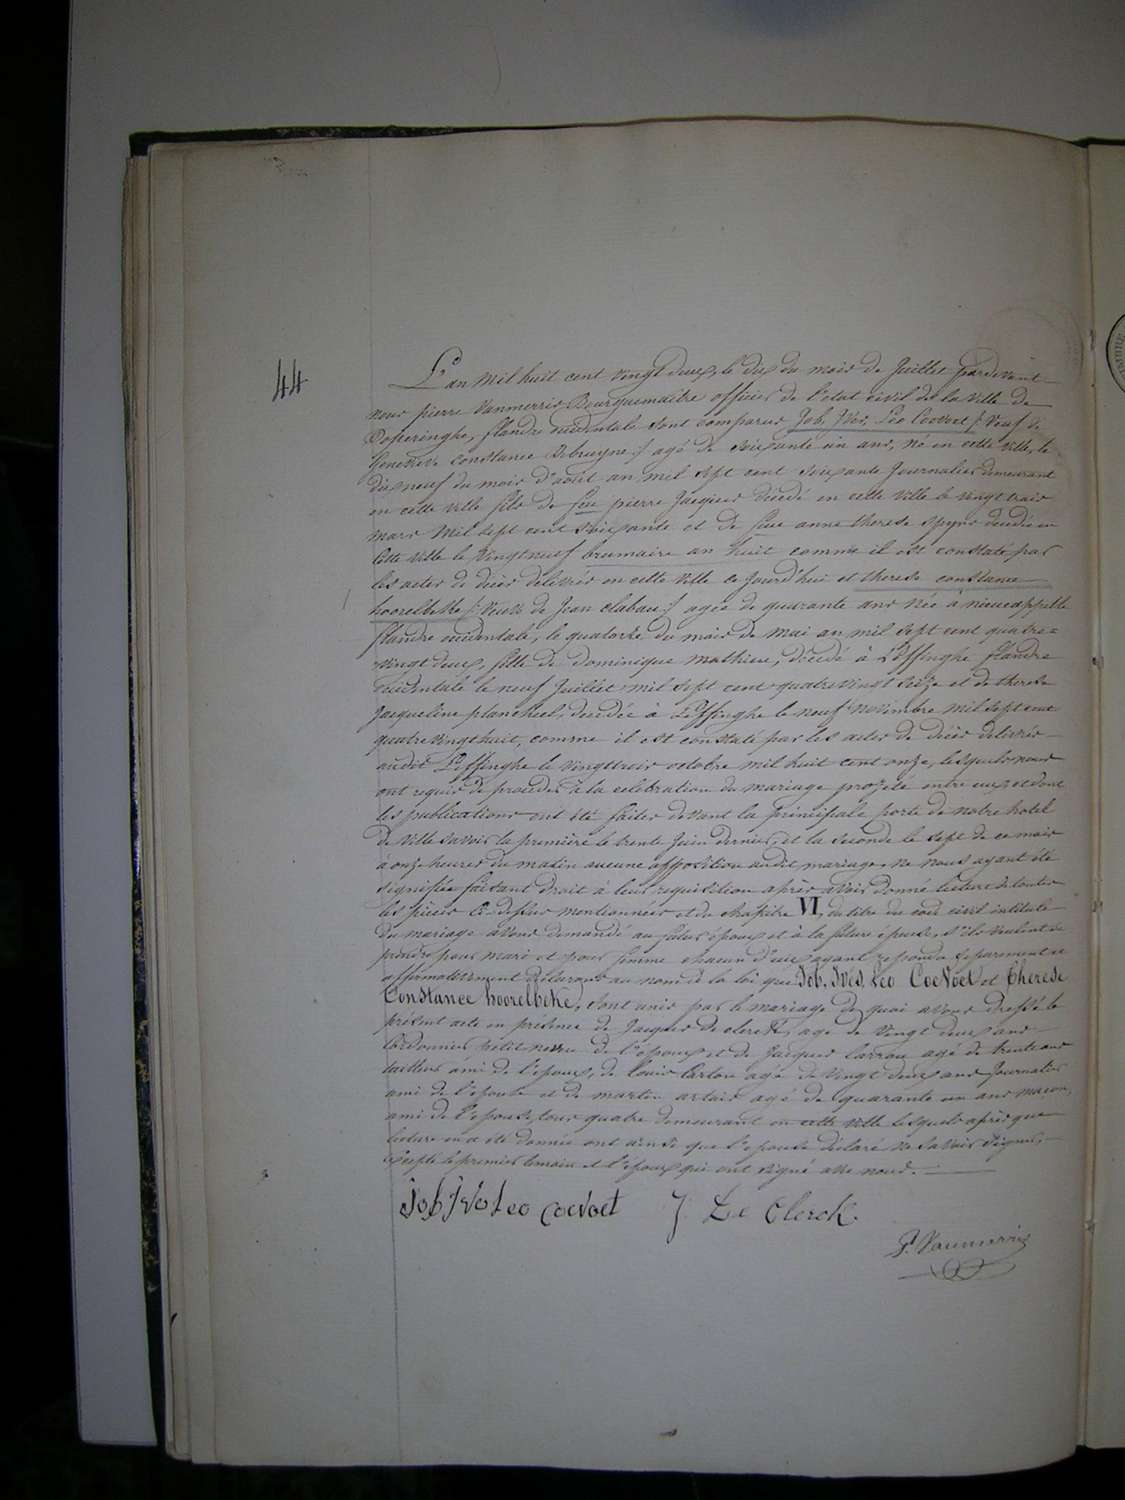 44
L'an mil huit cent vingt deux, le dix du mois de Juillet pardevant
nous pierre Vanmerris Bourguemaitre officier de l'etat civil de la ville de
Poperinghe, flandre occidentale sont comparus Job, Ives, Léo Coevoet /: Veuf de
Genevieve Constance Debruyne :/ agé de soixante un ans, né en cette ville, le
dix neuf du mois d'août an mil sept cent soixante Journalier demeurant
en cette ville fils de feu pierre Jacques décédé en cette ville le vingt trois
mars mil sept cent soixante et de feue anne therese decedée en
cette ville le vingtneuf brumaire an huit comme il est constaté par
les actes de décès delivrés en cette ville ce jourd'hui et therese constance
hoorelbeke /: Veuve de Jean Clabau :/ agée de quarante ans née à nieucappelle
flandre occidentale, le quatorze du mois de mai an mil sept cent quatre-
vingt deux, fille de Dominique Mathieu, décédé à Leffinghe flandre
occidentale le neuf Juillet mil sept cent quatre vingt seize et de therese
Jacqueline plancheel, decedée à Leffinghe le neuf Novembre mil sept cent
quatre vingt huit, comme il est constaté par les actes de décès delivrés
audit Leffinghe le vingttrois octobre mil huit cent onze, lesquels nous
ont requis de proceder à la celebration du mariage projeté entre eux et dont
les publications ont été faites devant la principale porte de notre hotel
de ville savoir la première le trente Juin dernier, et la seconde le sept de ce mois
à onze heures du matin aucune opposition audit mariage, ne nous ayant été
signifiée faisant droit à leur requisition après avoir donné lecture de toutes
les pièces ci-dessus mentionnées et du chapitre VI, du titre du code civil intitulé
du mariage avons demandé au futur époux et à la future épouse, s'ils veulent se
prendre pour mari et pour femme chacun d'eux ayant repondu separement et
affirmativement déclarons au nom de la loi que Job, Ives, Leo Coevoet et Therese
Constance hoorelbeke, sont unis par le mariage de quoi avons dressé le
présent acte en présence de Jacques De clerck, agé de vingt deux ans
cordonnier petit neveu de l'époux et de Jacques agé de trente ans
tailleur ami de l'epoux, de Louis agé de vingt deux ans Journalier
ami de l'epouse et de martin agé de quarante un ans maçon,
ami de l'epouse, tous quatre demeurant en cette ville lesquels après que
lecture en a été donnée ont ainsi que l'epouse déclaré ne savoir signer,
excepté le premier temoin et l'époux qui ont signé avec nous.
Job Ivo Leo Coevoet J. De Clerck
P. Vanmerris